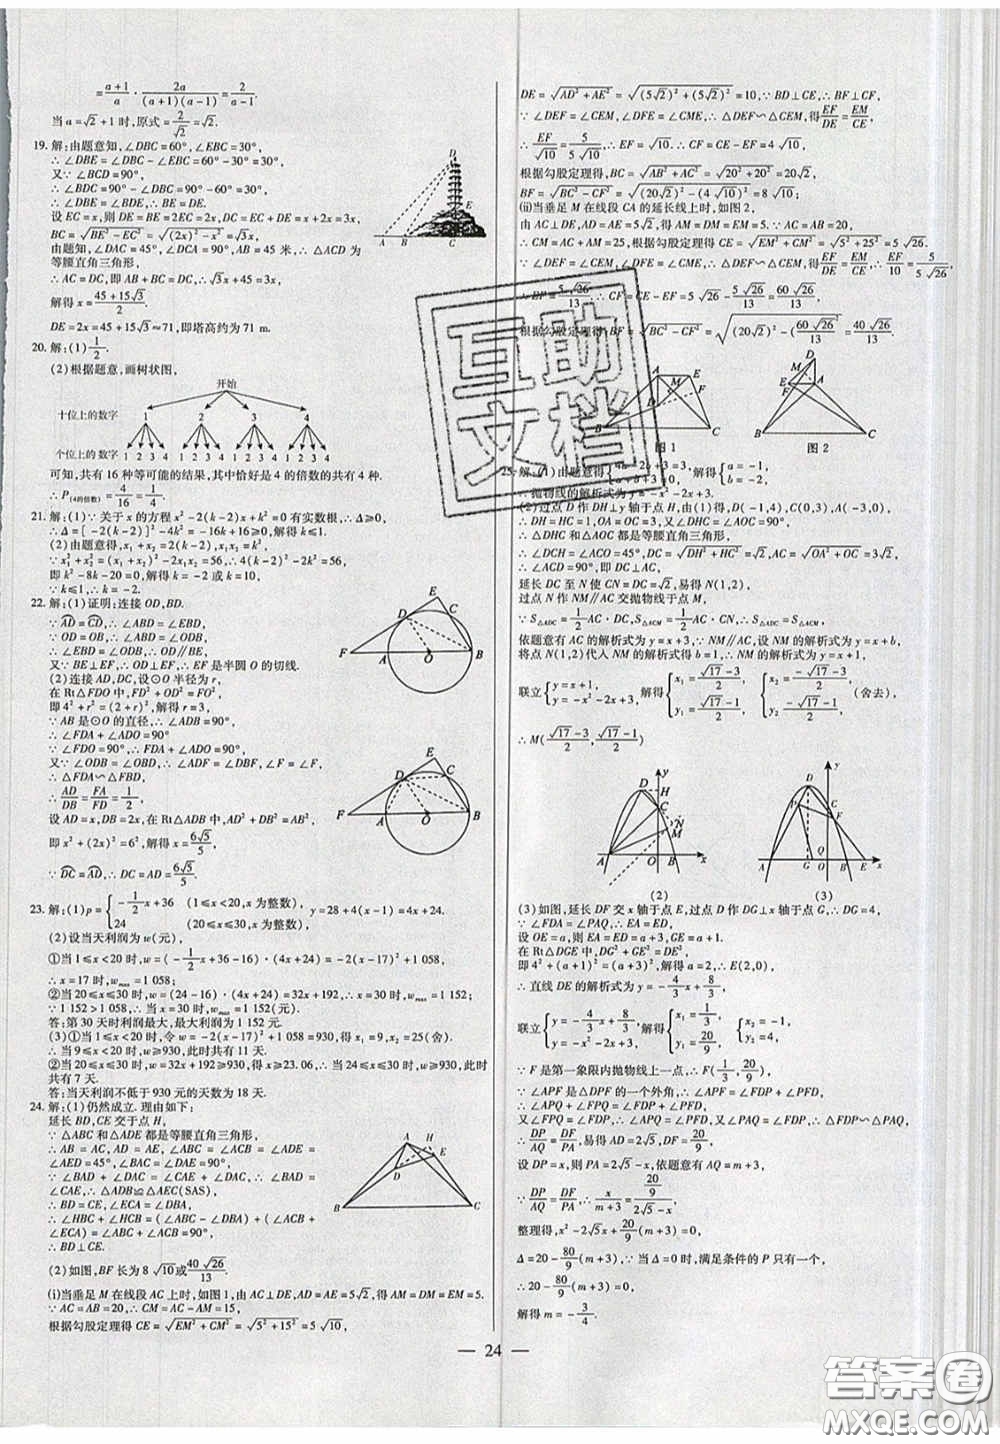 =\frac{a+1}{a}·\frac{2a}{(a+1)(a-1)}=\frac{2}{a-1}.
当a=√2+1时,原式=\frac{2}{√2}=√2.
19.解:由题意知,∠DBC=60°,∠EBC=30°,
∴∠DBE=∠DBC-∠EBC=60°-30°=30°.
又∵∠BCD=90°,
∴∠BDC=90°-∠DBC=90°-60°=30°.
∴∠DBE=∠BDE.∴BE=DE.
设EC=x,则DE=BE=2EC=2x,DC=EC+DE=x+2x=3x,
BC=√(BE²-EC²)=√((2x)²-x²)=√3x,
由题知,∠DAC=45°,∠DCA=90°,AB=45米,∴△ACD为
等腰直角三角形,
∴AC=DC,即AB+BC=DC,∴√3x+45=3x,
解得x=\frac{45+15√3}{2}.
DE=2x=45+15√3≈71,即塔高约为71 m.
20.解:(1)\frac{1}{2}.
(2)根据题意,画树状图,
开始
十位上的数字 1 2 3 4
个位上的数字 1 2 3 4 1 2 3 4 1 2 3 4 1 2 3 4
可知,共有16种等可能的结果,其中恰好是4的倍数的共有4种.
∴P(4的倍数)=\frac{4}{16}=\frac{1}{4}.
21.解:(1)∵关于x的方程x²-2(k-2)x+k²=0有实数根,∴Δ≥0,
∴Δ=[-2(k-2)]²-4k²=-16k+16≥0,解得k≤1.
(2)由题意得,x₁+x₂=2(k-2),x₁x₂=k²,
∵x₁²+x₂²=(x₁+x₂)²-2x₁x₂=56,∴4(k-2)²-2k²=56,
即k²-8k-20=0,解得k=-2或k=10,
∵k≤1,∴k=-2.
22.解:(1)证明:连接OD,BD.
∵AD=CD,∴∠ABD=∠EBD,
∵OD=OB,∴∠ABD=∠ODB,
∴∠EBD=∠ODB,∴OD∥BE,
又∵BE⊥EF,∴OD⊥EF,∴EF是半圆O的切线.
(2)连接AD,DC,设⊙O半径为r,
在Rt△FDO中,FD²+OD²=FO²,
即4²+r²=(2+r)²,解得r=3,
∵AB是⊙O的直径,∴∠ADB=90°,
∵∠FDO=90°,∴∠FDA+∠ADO=90°,
又∵∠ODB=∠OBD,∴∠ADF=∠DBF,∠F=∠F,
∴△FDA∽△FBD,
∴\frac{AD}{DB}=\frac{FA}{FD}=\frac{2}{4}=\frac{1}{2},
设AD=x,DB=2x,在Rt△ADB中,AD²+DB²=AB²,
即x²+(2x)²=6²,解得x=\frac{6√5}{5},
∵DC=AD,∴DC=AD=\frac{6√5}{5}.
23.解:(1)p={-\frac{1}{2}x+36 (1≤x<20,x为整数) y=28+4(x-1)=4x+24.
24 (20≤x≤30,x为整数),
(2)设当天利润为w(元),
①当1≤x<20时,w=(-\frac{1}{2}x+36-16)·(4x+24)=-2(x-17)²+1 058,
∴x=17时,w_max=1 058;
②当20≤x≤30时,w=(24-16)·(4x+24)=32x+192,∴x=30时,w_max=1 152;
∵1 152>1 058,∴x=30时,w_max=1 152.
答:第30天时利润最大,最大利润为1 152元.
(3)①当1≤x<20时,令w=-2(x-17)²+1 058=930,得x=9或x=25(舍).
∴当9≤x<20时,w≥930,此时共有11天.
②当20≤x≤30时,w=32x+192≥930,得x≥23.06,∴当24≤x≤30时,w≥930,此时
共有7天.
答:当天利润不低于930元的天数为18天.
24.解:(1)仍然成立.理由如下:
延长BD,CE交于点H,
∵△ABC和△ADE都是等腰直角三角形,
∴AB=AC,AD=AE,∠ABC=∠ACB=∠ADE=
∠AED=45°,∠BAC=∠DAE=90°,
∵∠BAD+∠DAC=∠CAE+∠DAC=90°,∴∠BAD=
∠CAE,∴△ADB≌△AEC(SAS),
∴BD=CE,∠ECA=∠DBA,
∴∠HBC+∠HCB=(∠ABC-∠DBA)+(∠ACB+
∠ECA)=∠ABC+∠ACB=90°,
∴BD⊥CE.
(2)如图,BF长为8√10或\frac{40√26}{13}.
(i)当垂足M在线段AC上时,如图1,由AC⊥DE,AD=AE=5√2,得AM=EM=DM=5.
∵AC=AB=20,∴CM=AC-AM=15,
根据勾股定理得CE=√(EM²+CM²)=√(5²+15²)=5√10,
DE=√(AD²+AE²)=√((5√2)²+(5√2)²)=10,∵BD⊥CE,∴BF⊥CF,
∵∠DEF=∠CEM,∠DFE=∠CME,∴△DEF∽△CEM,得\frac{EF}{DE}=\frac{EM}{CE},
∴\frac{EF}{10}=\frac{5}{5√10},∴EF=√10,∴CF=CE-EF=4√10,
根据勾股定理得,BC=√(AB²+AC²)=√(20²+20²)=20√2,
BF=√(BC²-CF²)=√((20√2)²-(4√10)²)=8√10,
(ii)当垂足M在线段CA的延长线上时,如图2,
由AC⊥DE,AD=AE=5√2,得AM=DM=EM=5.∵AC=AB=20,
∴CM=AC+AM=25,根据勾股定理得CE=√(EM²+CM²)=√(5²+25²)=5√26.
∵∠DEF=∠CEM,∠DFE=∠CME,∴△DEF∽△CEM,得\frac{EF}{DE}=\frac{EM}{CE},∴\frac{EF}{10}=\frac{5}{5√26},
∴EF=\frac{5√26}{13},∴CF=CE-EF=5√26-\frac{5√26}{13}=\frac{60√26}{13},
根据勾股定理得BF=√(BC²-CF²)=√((20√2)²-(\frac{60√26}{13})²)=\frac{40√26}{13}.
图1 图2
25.解:(1)由题意得{4a-2b+3=3, a+b+3=0, 解得{a=-1, b=-2.
∴抛物线的解析式为y=-x²-2x+3.
(2)过点D作DH⊥y轴于点H,由(1)得,D(-1,4),C(0,3),A(-3,0),
∴DH=HC=1,OA=OC=3,又∵∠DHC=∠AOC=90°,
∴△DHC和△AOC都是等腰直角三角形,
∴∠DCH=∠ACO=45°,DC=√(DH²+HC²)=√2,AC=√(OA²+OC²)=3√2,
∴∠ACD=90°,即DC⊥AC.
延长DC至N使CN=DC=√2,易得N(1,2)
过点N作NM∥AC交抛物线于点M,
∵S△ADC=\frac{1}{2}AC·DC,S△ACM=\frac{1}{2}AC·CN,∴S△ADC=S△ACM.
依题意有AC的解析式为y=x+3,∵NM∥AC,设NM的解析式为y=x+b,
将点N(1,2)代入NM的解析式得b=1,∴NM的解析式为y=x+1,
联立{y=x+1, y=-x²-2x+3, 解得{x₁=\frac{√17-3}{2}, y₁=\frac{√17-1}{2}, {x₂=\frac{-√17-3}{2}, y₂=\frac{-√17-1}{2} (舍去),
∴M(\frac{√17-3}{2},\frac{√17-1}{2})
(2) (3)
(3)如图,延长DF交x轴于点E,过点D作DG⊥x轴于点G,∴DG=4,
∵∠FDA=∠PAQ,∴EA=ED,
设OE=a,则EA=ED=a+3,GE=a+1.
在Rt△DGE中,DG²+GE²=DE²,
即4²+(a+1)²=(a+3)²,解得a=2,∴E(2,0),
∴直线DE的解析式为y=-\frac{4}{3}x+\frac{8}{3}.
联立{y=-\frac{4}{3}x+\frac{8}{3}, y=-x²-2x+3, 解得{x₁=\frac{1}{3}, y₁=\frac{20}{9}, {x₂=-1, y₂=4,
∵F是第一象限内抛物线上一点,∴F(\frac{1}{3},\frac{20}{9}),
∵∠APF是△DPF的一个外角,∴∠APF=∠FDP+∠PFD,
∴∠APQ+∠FPQ=∠FDP+∠PFD,
又∠FPQ=∠FDP,∴∠APQ=∠PFD,又∠FDP=∠PAQ,∴△FDP∽△PAQ,
∴\frac{DP}{AQ}=\frac{DF}{PA},易得AD=2√5,DF=\frac{20}{9},
设DP=x,则PA=2√5-x,依题意有AQ=m+3,
∵\frac{DP}{AQ}=\frac{DF}{PA},∴\frac{x}{m+3}=\frac{\frac{20}{9}}{2√5-x},
整理得,x²-2√5x+\frac{20}{9}(m+3)=0,
Δ=20-\frac{80}{9}(m+3),∵当Δ=0时,满足条件的P只有一个,
∴20-\frac{80}{9}(m+3)=0,
解得m=-\frac{3}{4}.
— 24 —
互助
文档
答案圈
MXQE.COM